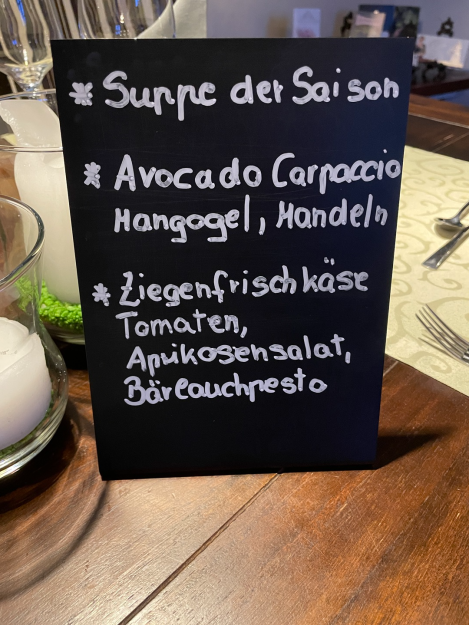 * Suppe der Saison
* Avocado Carpaccio
Mangogel, Mandeln
* Ziegenfrischkäse
Tomaten,
Aprikosensalat,
Bärlauchpesto